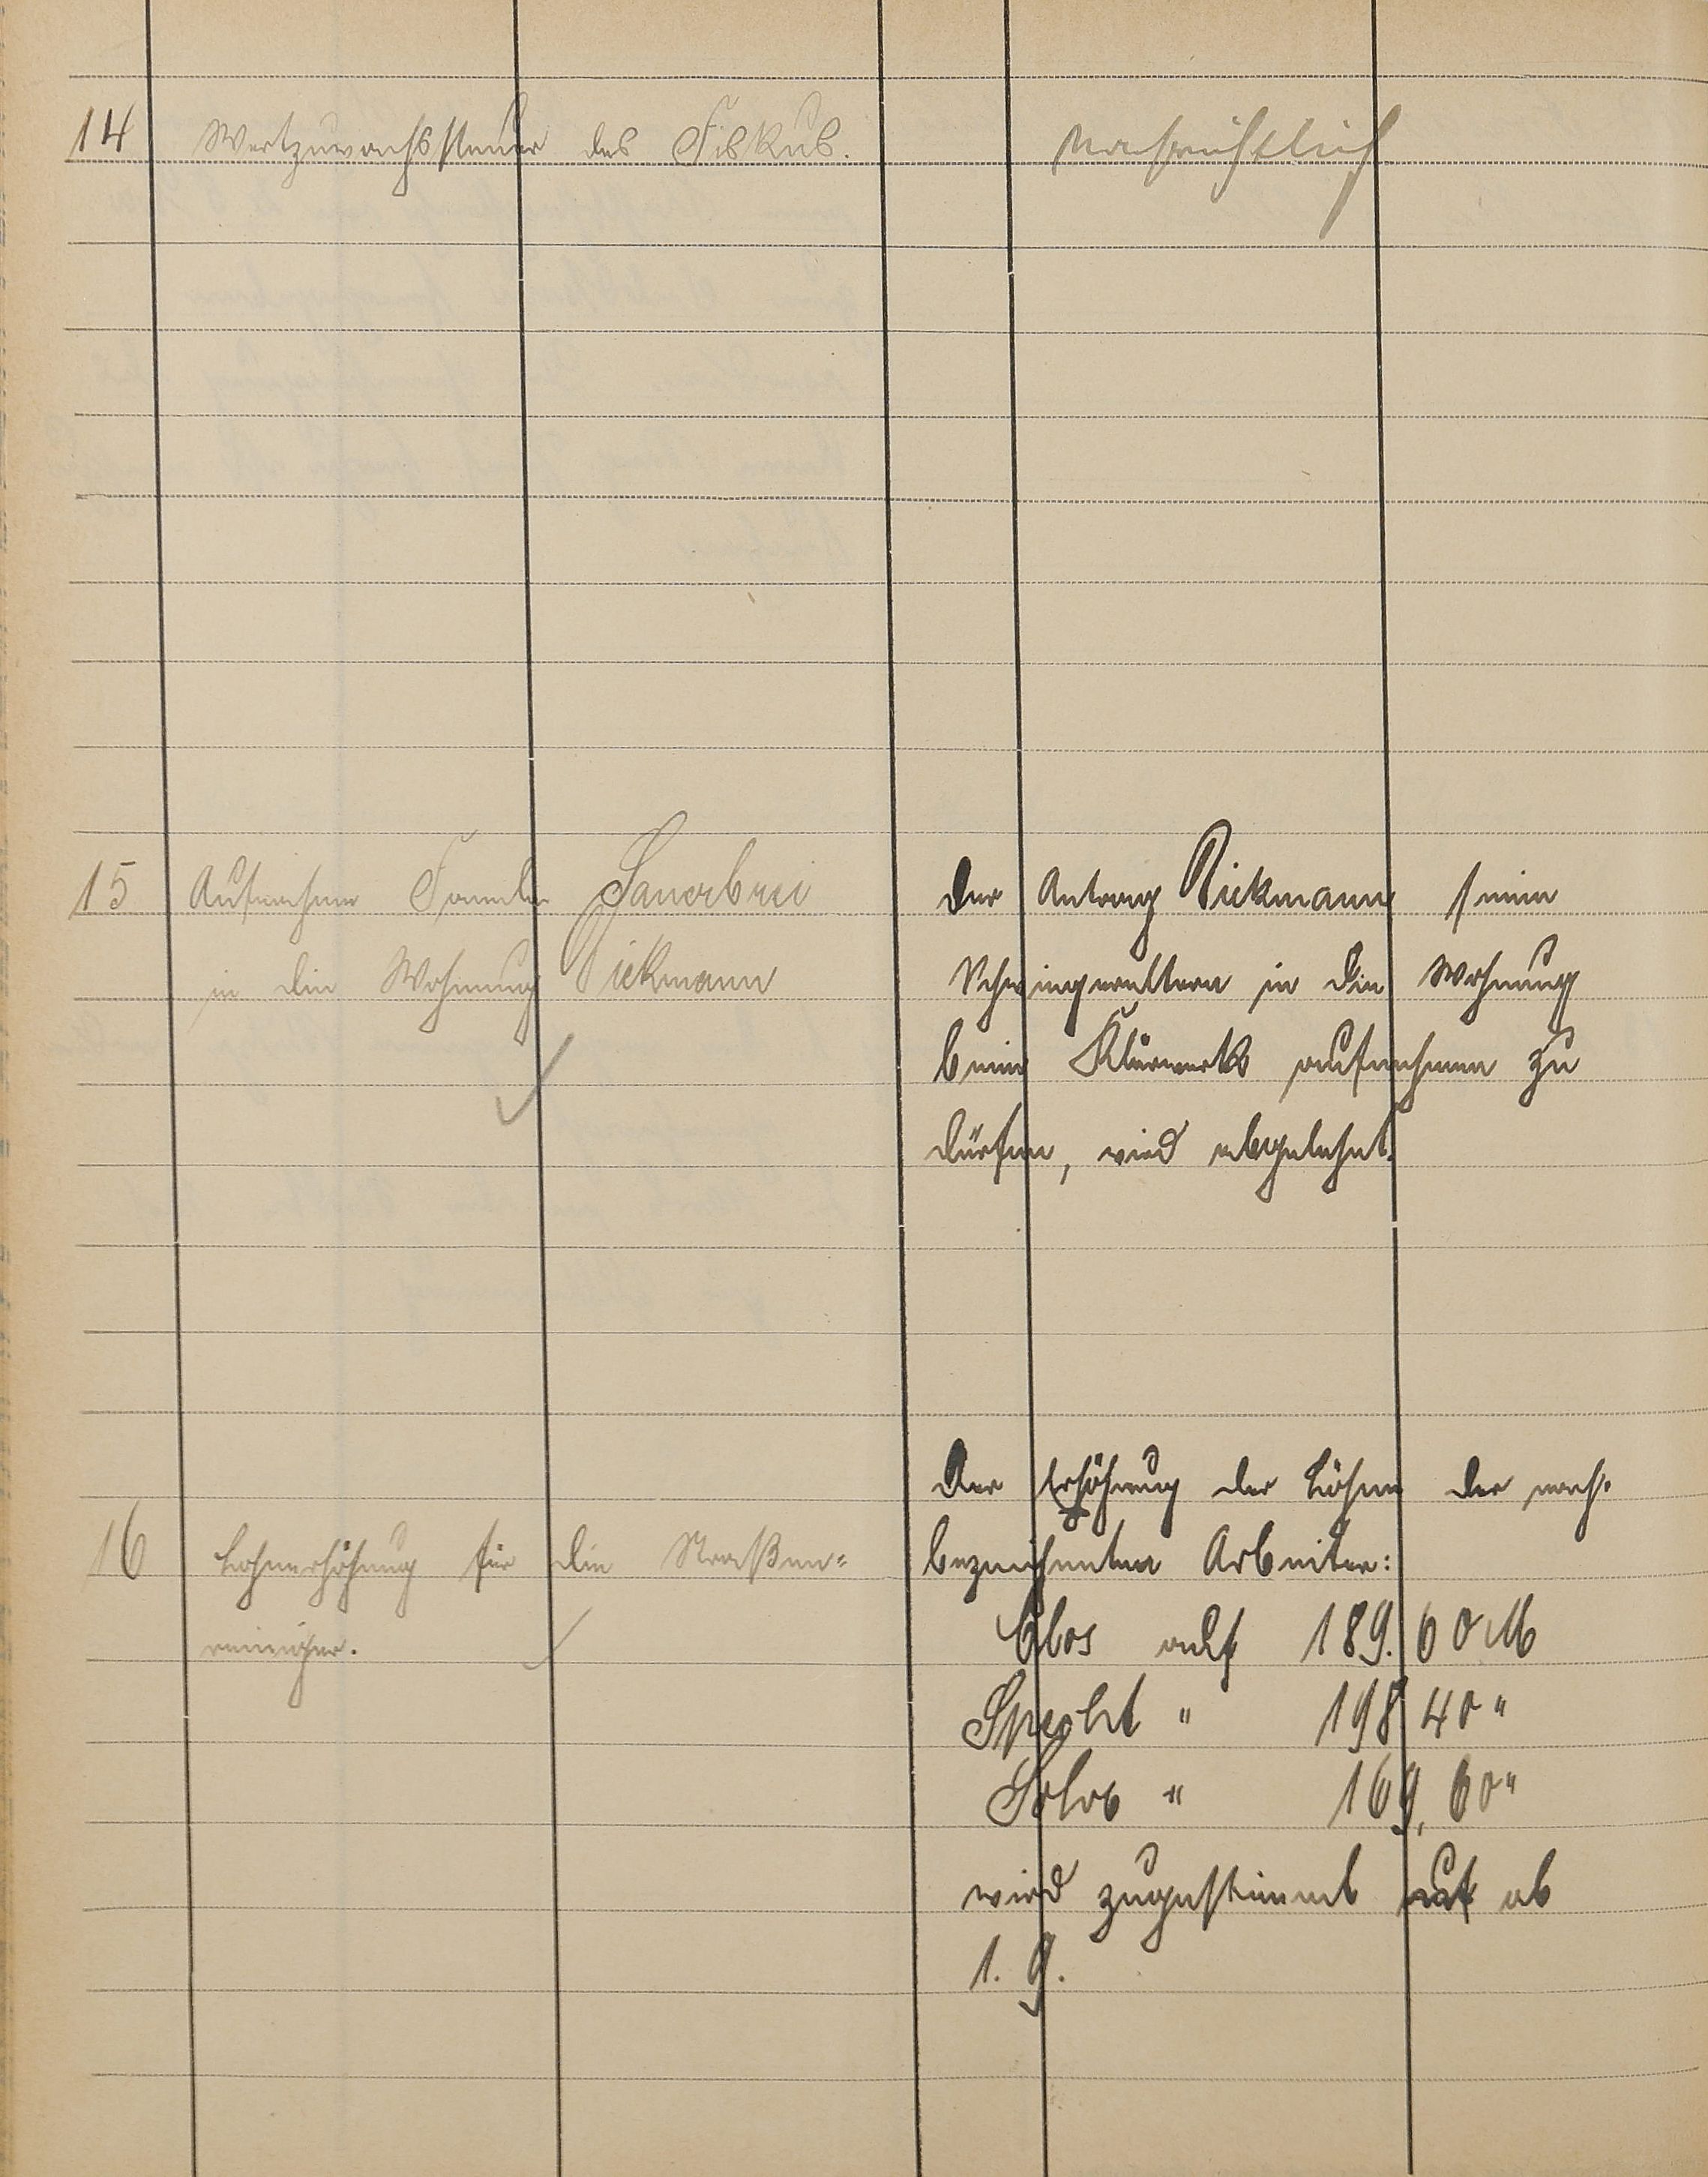 14 Wertzuwachssteuer des Fiskus.
nachrichtlich
15 Aufnahme Famile Sauerbrei
in die Wohnung Dickmann
Der Antrag Dickmann seine
Schwiegereltern in die Wohnung
beim Klärwerks aufnehmen zu
dürfen, wird abgelehnt.
16 Lohnerhöhung für die Straßen=
reiniger.
Der Erhöhung der Löhne der nach-
bezeichneten Arbeiter:
Clos auf 189.60 M
Specht " 198 40 "
" 169,60 "
wird zugestimmt ab
1. 9.